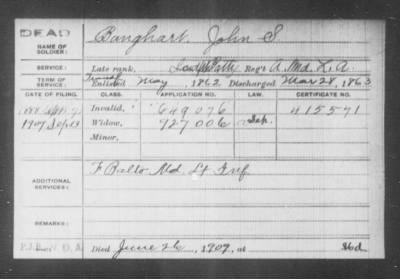 DEAD
NAME OF SOLDIER: Banghart, John S
SERVICE: Late rank, Reg't A. Md. L. A.
TERM OF SERVICE: Enlisted May, 1862 Discharged Mar 28, 1863
DATE OF FILING. CLASS. APPLICATION NO. LAW. CERTIFICATE NO.
1888 Invalid, 649076 415571
1909 Sep 13 Widow, 927006 Sep.
Minor,
ADDITIONAL SERVICES: F Balto Md Lt Inf
REMARKS:
Died June 26, 1909, at Md